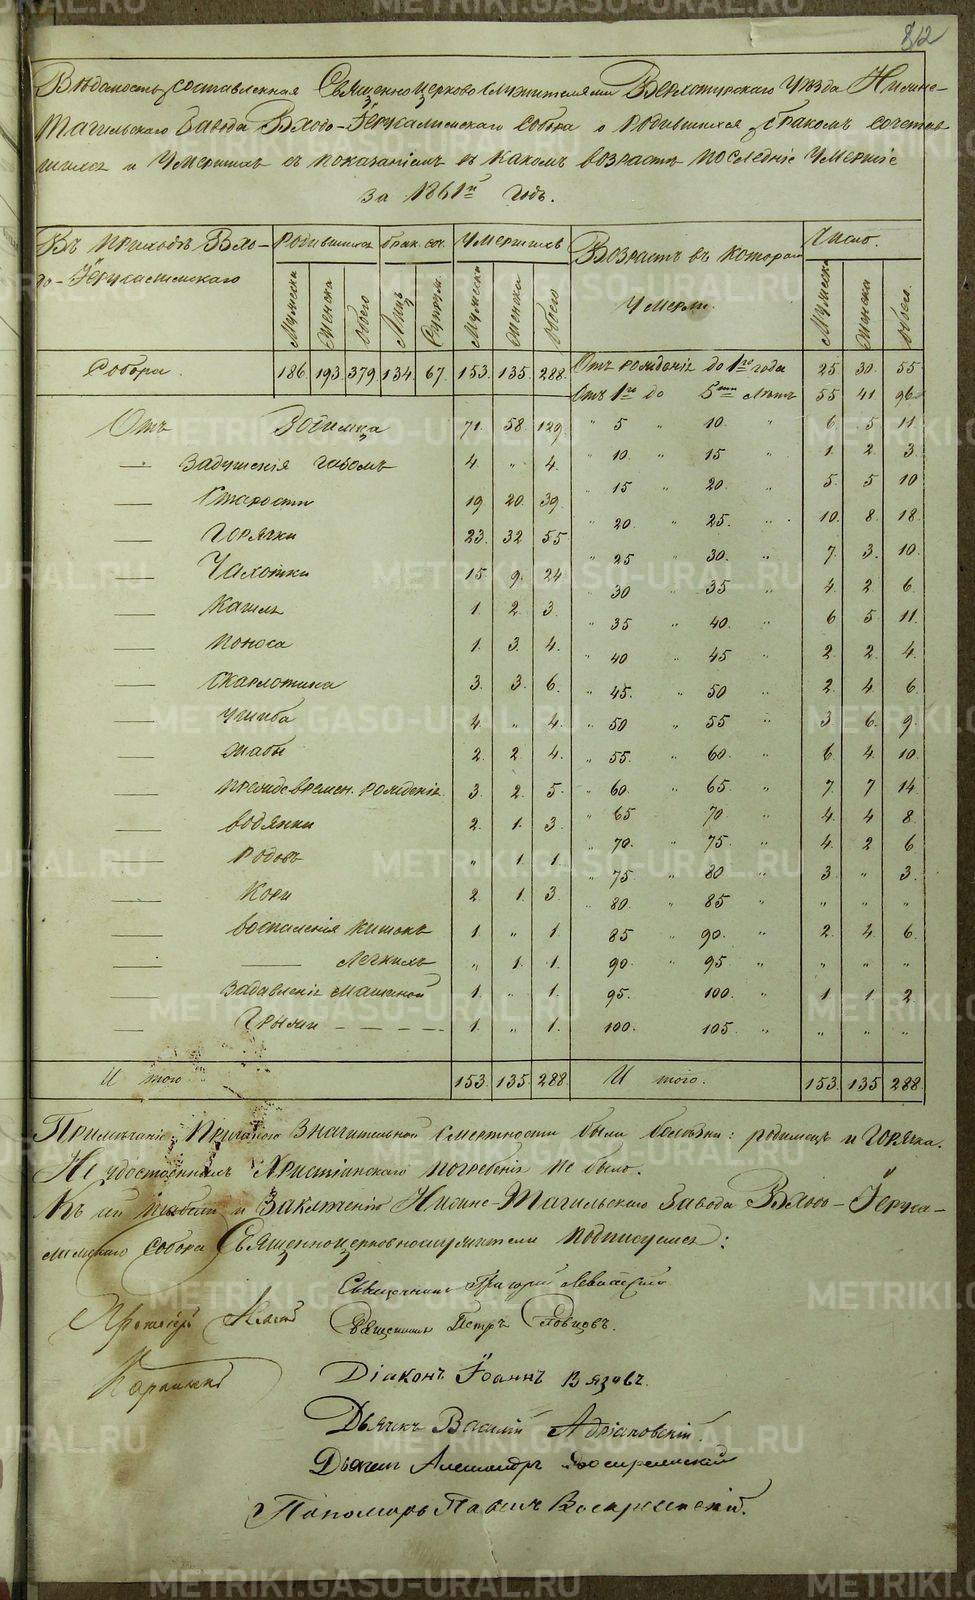 812
Вѣдомость, составленная Священноцерковнослужителями Верхотурскаго Уѣзда Нижне-
Тагильскаго Завода Входо-Іерусалимскаго Собора о родившихся, бракомъ сочетав
шихся и Умершихъ съ показаніемъ въ какомъ возрастѣ послѣдніе Умершіе
за 1861й годъ.
Въ приходѣ Вхо- Родившихся брак. соч. Умершихъ Возрастъ въ которой Число.
до-Іерусалимскаго Мужеска Женска Обоего Лицъ Супруж. Мужеска Женска Обоего Умерли. Мужеска Женска Обоего.
Собора. 186. 193 379 134. 67. 153. 135. 288. Отъ рожденія до 1го года 25. 30. 55
Отъ 1го до 5ти лѣтъ 55 41 96
Отъ Родимца 71. 58 129 " 5 " 10. " 6. 5 11
— Задушенія газомъ 4. " 4. " 10. " 15 " 1 2 3
— Старости 19 20. 39. " 15 " 20. " 5. 5 10
— Горячки 23. 32 55 " 20. " 25. " 10. 8. 18.
— Чахотки 15. 9. 24 " 25 " 30. " 7. 3. 10.
— Кашля 1. 2. 3. " 30 " 35 " 4. 2 6.
— Поноса 1. 3. 4. " 35 " 40. " 6 5 11.
— Скарлатина 3. 3. 6. " 40 " 45 " 2. 2 4.
— Ушиба 4. " 4. " 45. " 50 " 2. 4. 6.
— Жабы 2. 2 4. " 50 " 55 " 3. 6. 9.
— преждевремен. рожденія 3. 2. 5. " 55. " 60. " 6. 4. 10.
— водянки 2. 1. 3. " 60. " 65. " 7. 7 14.
— Родовъ " 1. 1. " 65 70 " 4. 4 8
— Кори 2 1. 3. " 70. " 75. " 4. 2 6
— воспаленія кишокъ 1. " 1. " 75. " 80 " 3. " 3.
— — Легкихъ " 1. 1. " 80. " 85 " " " "
— Задавленія машиной 1. " 1. 85 " 90. " 2. 4. 6.
— Грыжи 1. " 1. 90. " 95 " " " "
95. 100. " 1 1. 2.
100. 105. " " " "
И того 153. 135. 288 И того. 153. 135 288
Примѣчаніе. Причиною значительной смертности были болѣзни: родимецъ и горячка.
Не удостоенныхъ Христіанскаго погребенія не было.
Къ сей и Заключенію Нижне-Тагильскаго Завода Входо-Іеруса-
лимскаго Собора Священноцерковнослужители подписуемся:
Священникъ Григорій Левитскій
Протоіерей Священникъ Петръ Словцовъ.
Діаконъ Іоаннъ Вязовъ.
Дьячекъ Василій Адріановскій.
Дьячекъ Александръ
Пономарь Павелъ Воскресенскій.